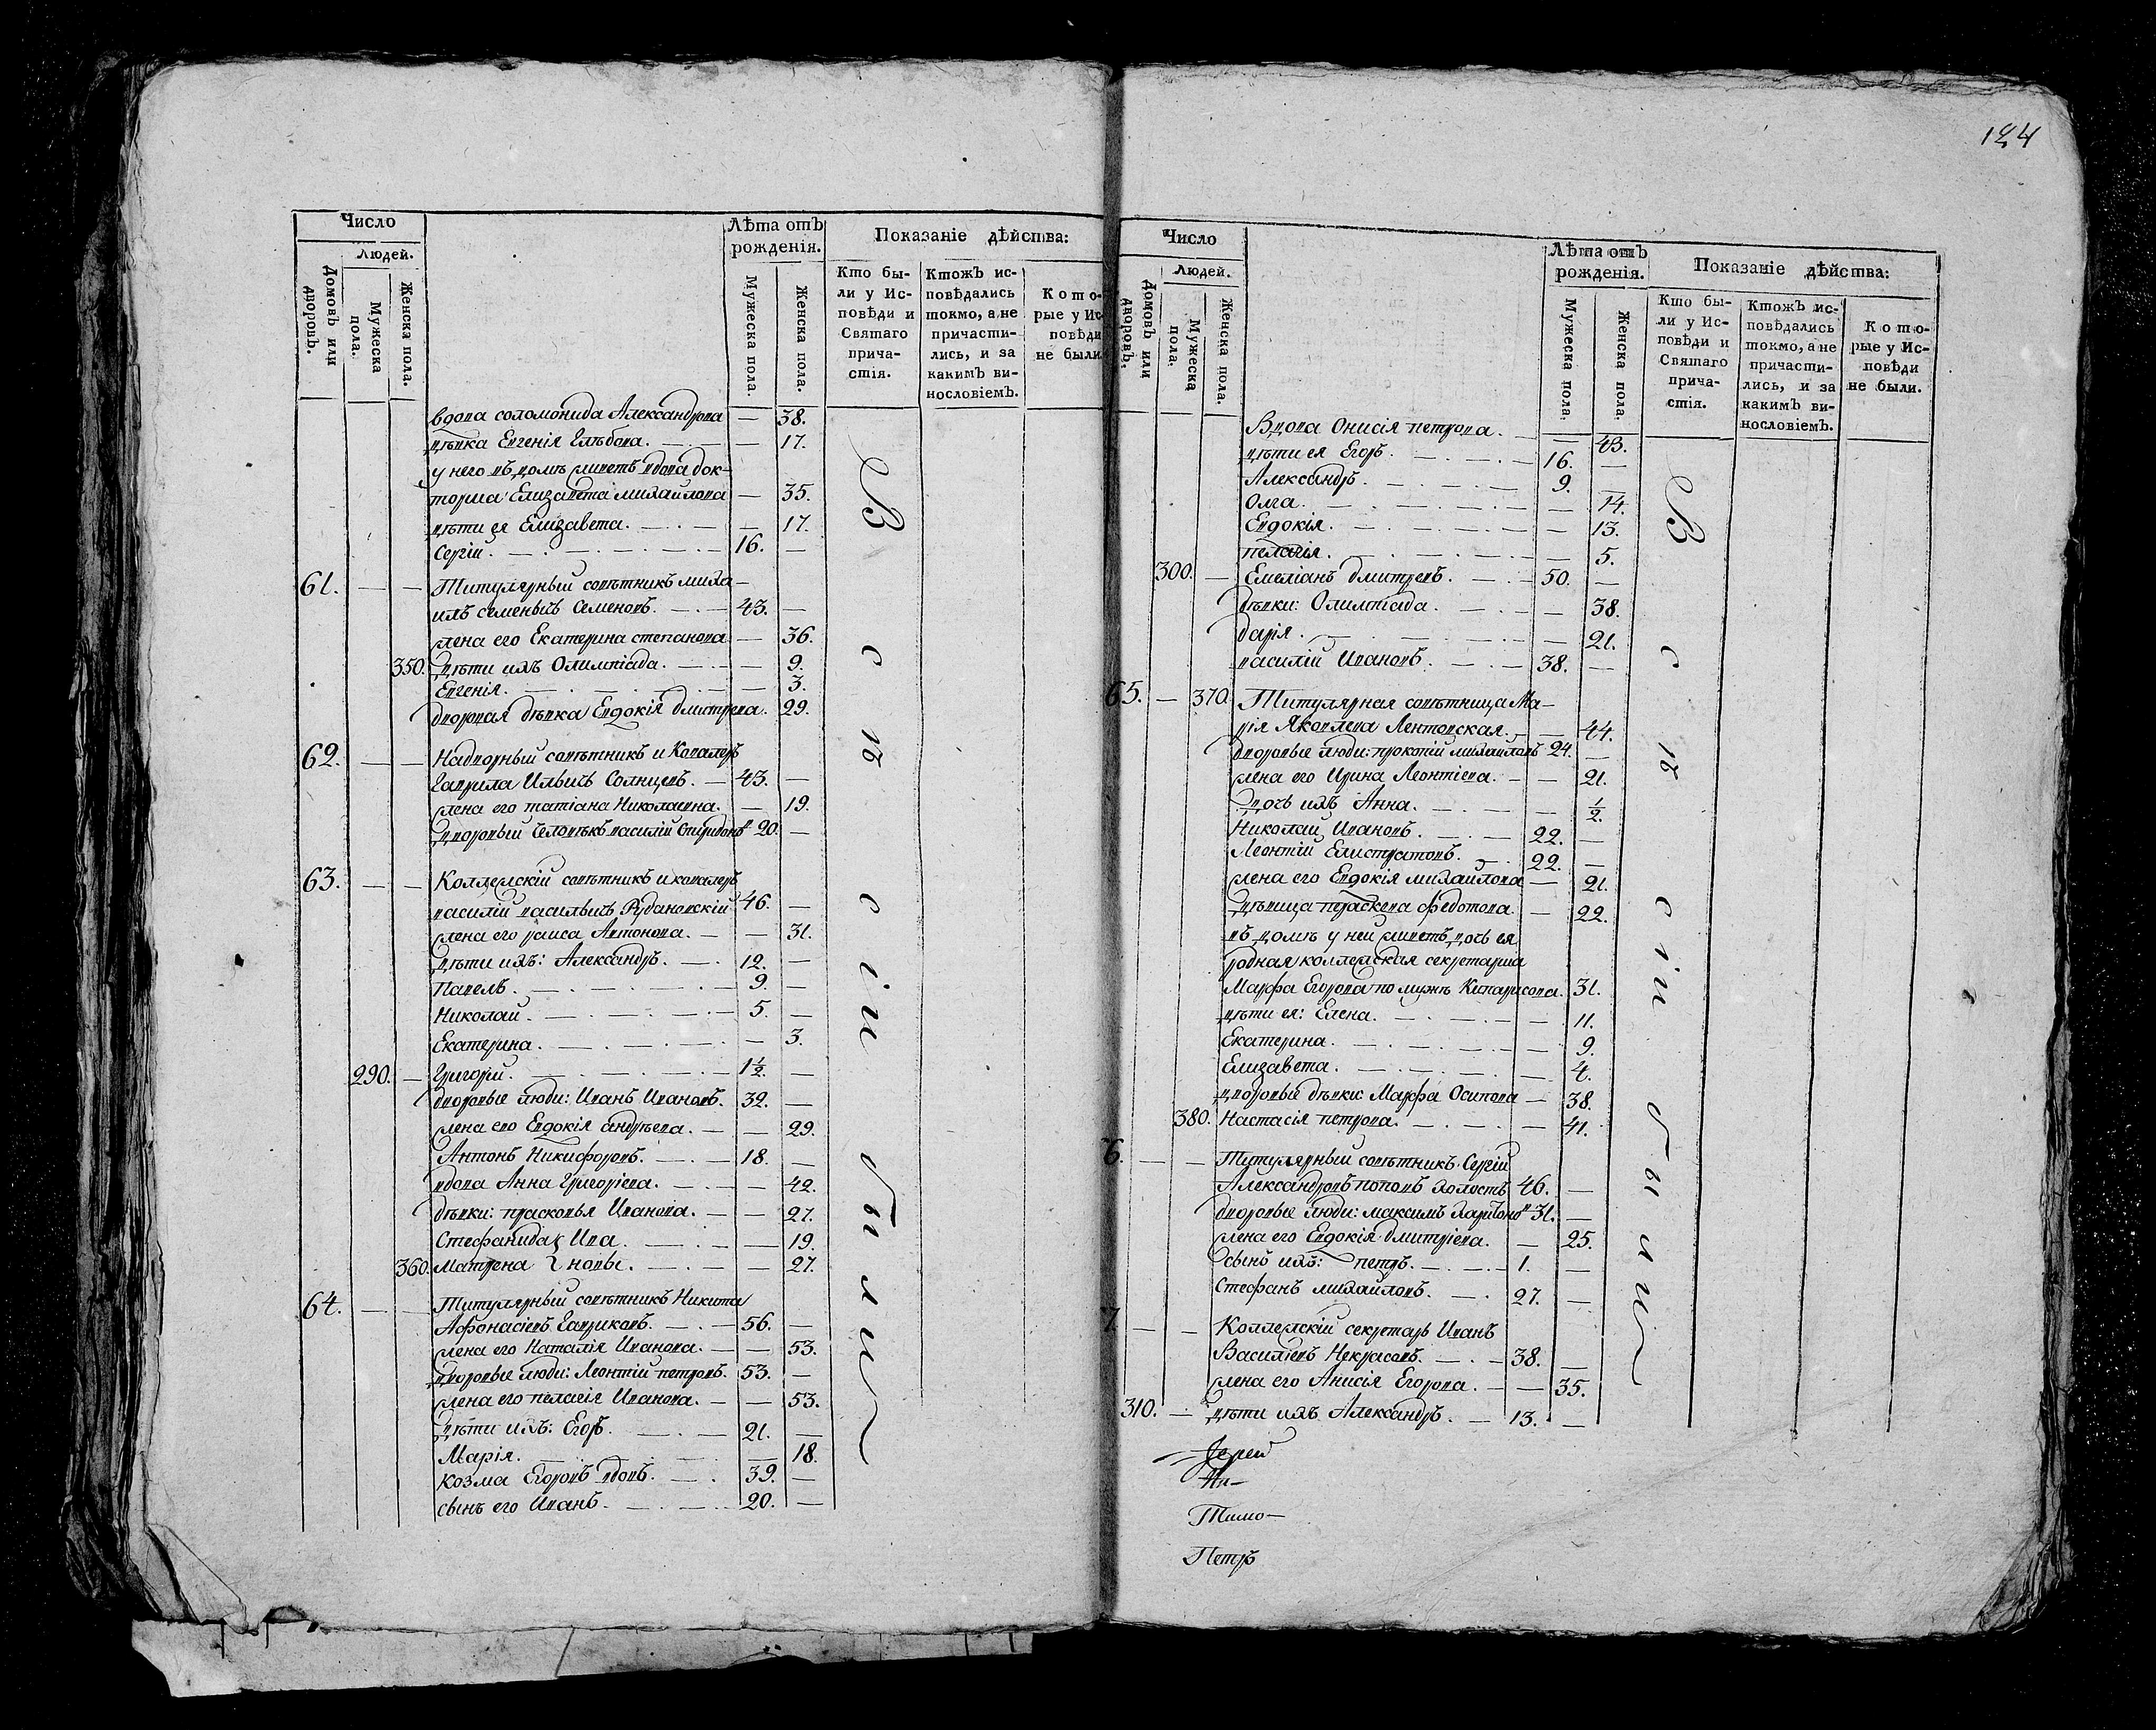 124
Число
Людей.
Домовъ или дворовъ.
Мужеска пола.
Женска пола.
Лѣта отъ рожденія.
Мужеска пола.
Женска пола.
Показаніе дѣйства:
Кто бы-
ли у Ис-
повѣди и
Святаго
прича-
стія.
Ктожъ ис-
повѣдались
токмо, а не
причасти-
лись, и за
какимъ ви-
нословіемъ.
Кото-
рые у Ис-
повѣди
не были.
вдова соломонида Александрова — 38.
дѣвка Евгенія Глѣбова. — 17.
у него въ домѣ живетъ вдова док-
торша Елизавета михайлова — 35.
дѣти ея Елизавета. — 17.
Сергій. 16. —
61. — — Титулярный совѣтникъ миха-
илъ семенычъ Семеновъ. 43. —
жена его Екатерина степанова — 36.
350. дѣти ихъ Олимпіада. — 9.
Евгенія. — 3.
дворовая дѣвка Евдокія дмитрева. 29.
62. — — Надворный совѣтникъ и Кавалеръ
Гаврила Ильичъ Солнцевъ. 43. —
жена его татіана Николаевна. — 19.
дворовый человѣкъ василій Спиридоновъ 20. —
63. — — Коллежскій совѣтникъ и кавалеръ
василій васильичъ Рудановскій 46. —
жена его раиса Антонова. — 31.
дѣти ихъ: Александръ. 12. —
Павелъ. 9. —
Николай. 5. —
Екатерина. — 3.
290. — Григорій. 1 1/2. —
дворовые люди: Иванъ Ивановъ. 32. —
жена его Евдокія андрѣева. — 29.
Антонъ Никифоровъ. 18. —
вдова Анна Григоріева. — 42.
дѣвки: прасковья Иванова. — 27.
Стефанида Ива — 19.
360. Матрена новы. — 27.
64. — — Титулярный совѣтникъ Никита
Афонасіевъ Гавриковъ. 56. —
жена его Наталія Иванова. — 53.
дворовые люди: Леонтій петровъ. 53. —
жена его пелагія Иванова. — 53.
дѣти ихъ: Егоръ. 21. —
Марія. — 18.
козма Егоровъ вдовъ. 39. —
сынъ его Иванъ. 20. —
В с в с і и б ы л и
Число
Людей.
Домовъ или дворовъ.
Мужеска пола.
Женска пола.
Лѣта отъ рожденія.
Мужеска пола.
Женска пола.
Показаніе дѣйства:
Кто бы-
ли у Ис-
повѣди и
Святаго
прича-
стія.
Ктожъ ис-
повѣдались
токмо, а не
причасти-
лись, и за
какимъ ви-
нословіемъ.
Кото-
рые у Ис-
повѣди
не были.
Вдова Онисія петрова. — 43.
дѣти ея Егоръ. 16. —
Александръ. 9. —
Олга. — 14.
Евдокія. — 13.
пелагія. — 5.
300. — Емеліанъ дмитревъ. 50. —
дѣвки: Олимпіада. — 38.
дарія. — 21.
василій Ивановъ. 38. —
65. — 370. Титулярная совѣтница Ма-
рія Яковлева Лентовская. — 44.
дворовые люди: прокопій михайловъ 24. —
жена его Ирина Леонтіева. — 21.
дочь ихъ Анна. — 1/2.
Николай Ивановъ. 22. —
Леонтій Елистратовъ. 22. —
жена его Евдокія михайлова — 21.
дѣвица параскева Федотова. — 22.
въ домѣ у ней живетъ дочь ея
родная коллежская секретарша
Марфа Егорова по мужѣ Кипарисова. 31.
дѣти ея: Елена. — 11.
Екатерина. — 9.
Елизавета. — 4.
дворовые дѣвки: Марфа Осипова — 38.
380. Настасія петрова. — 41.
6. — — Титулярный совѣтникъ Сергій
Александровъ поповъ холостъ 46. —
дворовые люди: максимъ харитоновъ 31. —
жена его Евдокія дмитріева. — 25.
сынъ ихъ: петръ. 1. —
Стефанъ михайловъ. 27. —
7. — — Коллежскій секретарь Иванъ
Василіевъ Некрасовъ. 38. —
жена его Анисія Егорова. — 35.
310. — дѣти ихъ Александръ. 13. —
В с в с і и б ы л и
Іерей
Ни-
Тимо-
Петръ